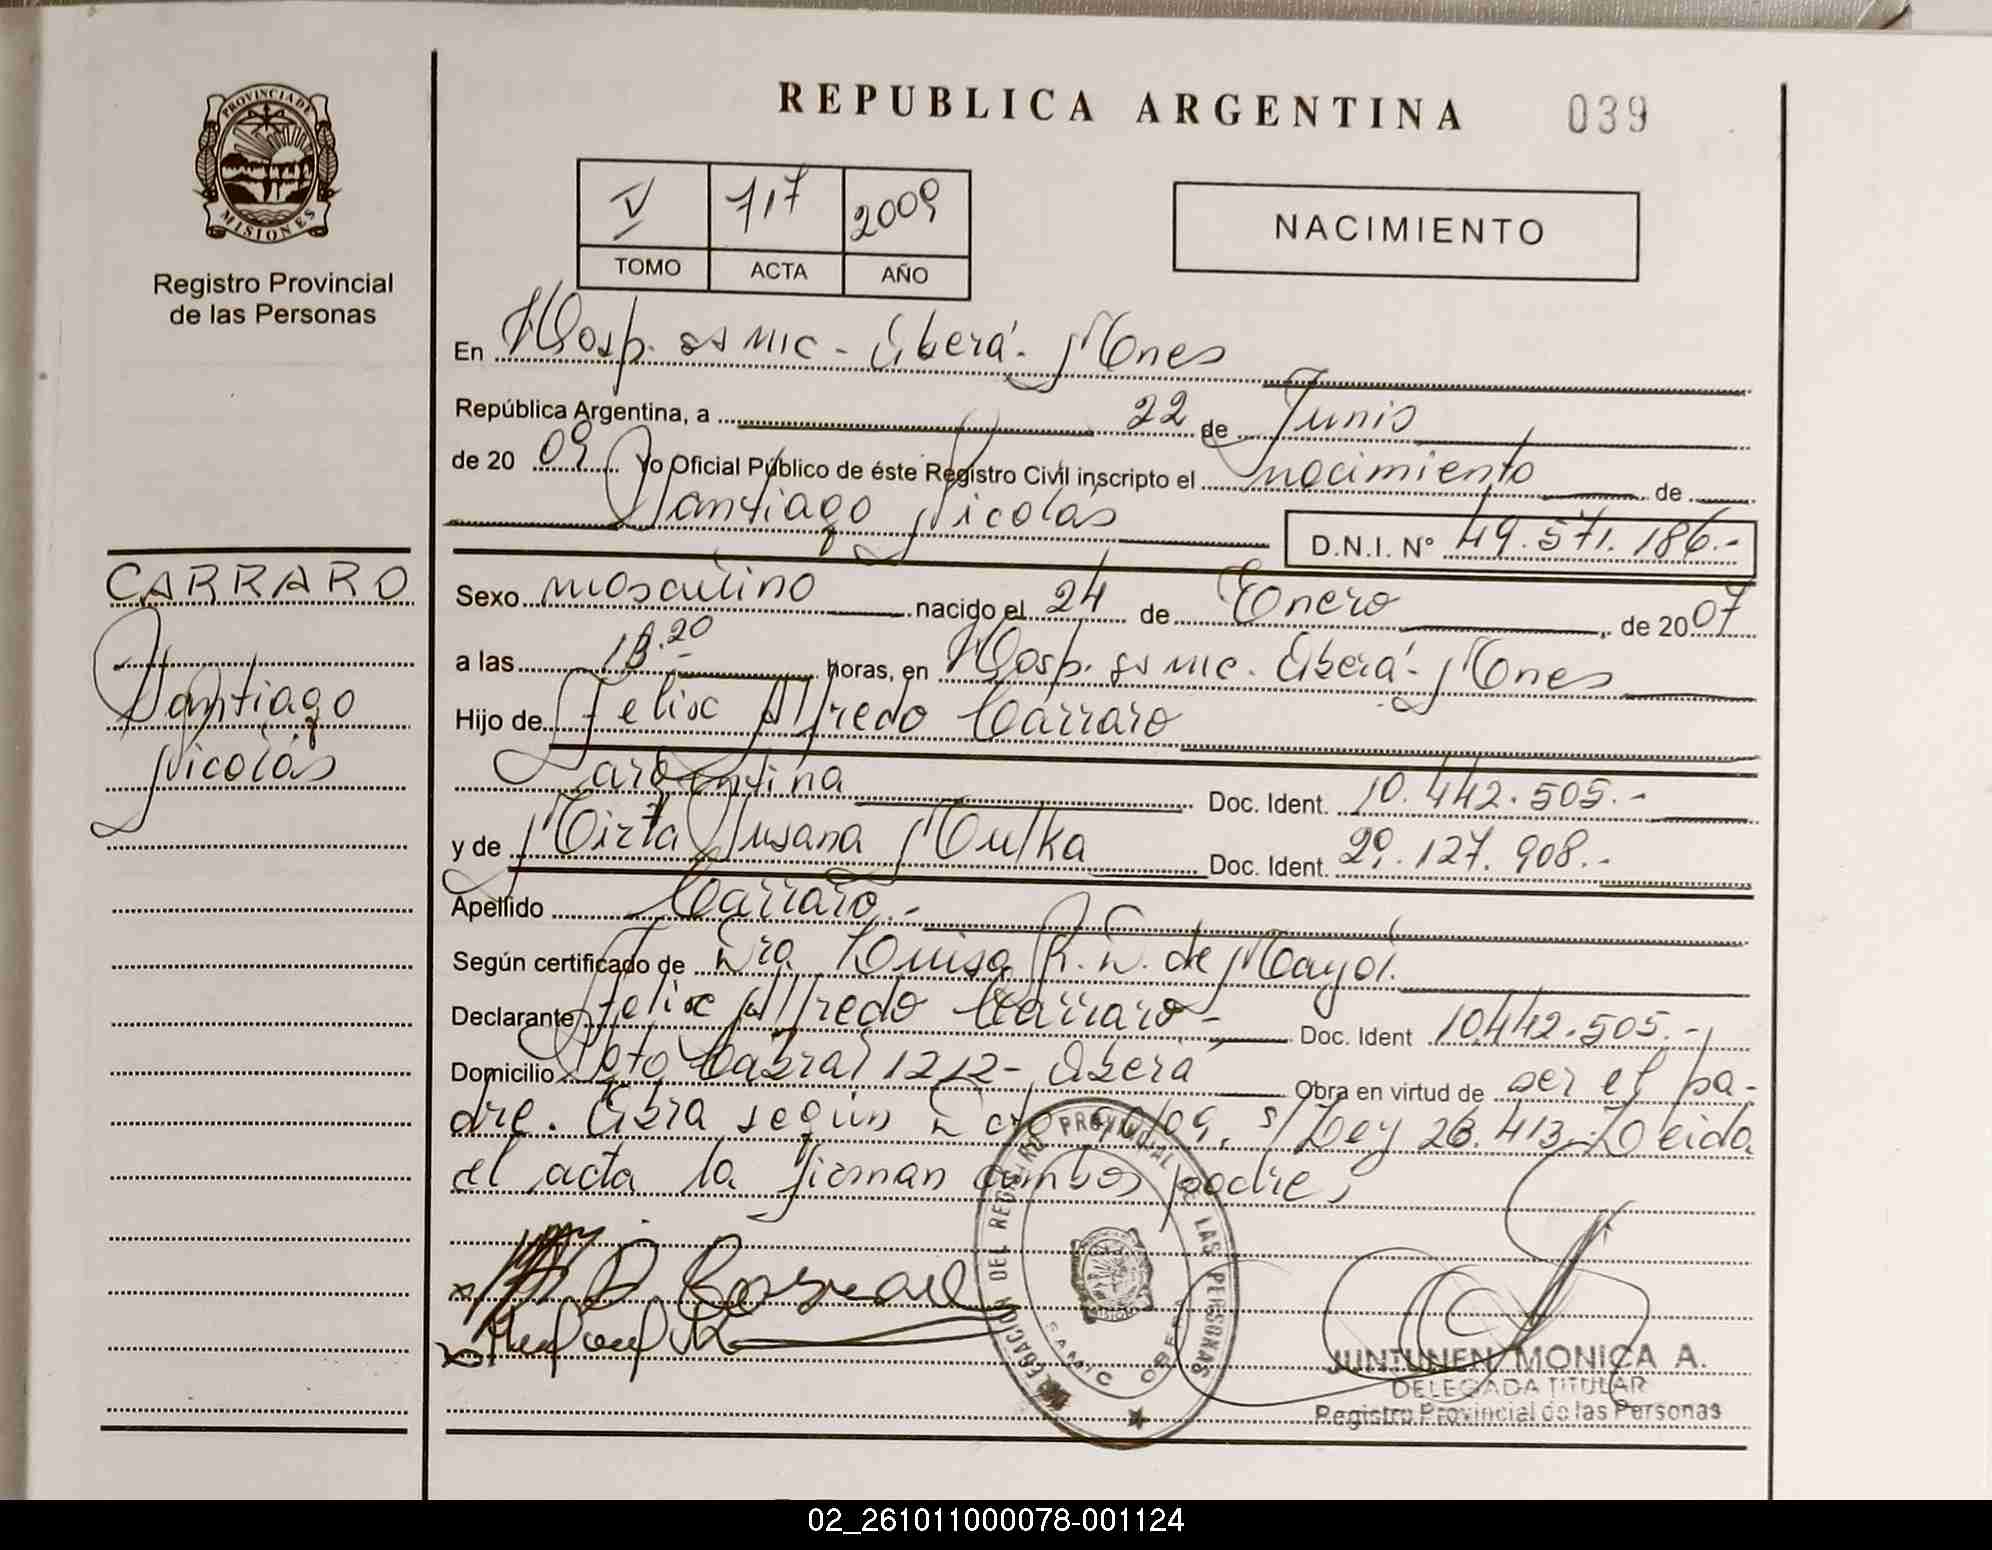 REPUBLICA ARGENTINA 039
PROVINCIA DE
MISIONES
Registro Provincial
de las Personas
V 717 2009
TOMO ACTA AÑO
NACIMIENTO
En Hosp. SAMIC - Oberá - Mnes
República Argentina, a 22 de Junio
de 20 09 Yo Oficial Público de éste Registro Civil inscripto el nacimiento de
Santiago Nicolás D.N.I. N° 49.571.186.-
CARRARO
Santiago
Nicolás
Sexo masculino nacido el 24 de Enero de 20 07
a las 18.20 horas, en Hosp. SAMIC. Oberá - Mnes
Hijo de Felix Alfredo Carraro
argentina Doc. Ident. 10.442.505.-
y de Mirta Susana Mulka Doc. Ident. 29.127.908.-
Apellido Carraro.-
Según certificado de Dra. Luisa R. D. de Mayol.
Declarante Felix Alfredo Carraro - Doc. Ident 10.442.505.-
Domicilio Sgto Cabral 1212 - Oberá Obra en virtud de ser el pa-
dre. Obra según Dcto 90/09, s/ Ley 26.413 - Leida
el acta la firman ambos padres
DELEGACION DEL REGISTRO PROVINCIAL DE LAS PERSONAS
SAMIC OBERA
JUNTUNEN MONICA A.
DELEGADA TITULAR
Registro Provincial de las Personas
02_261011000078-001124